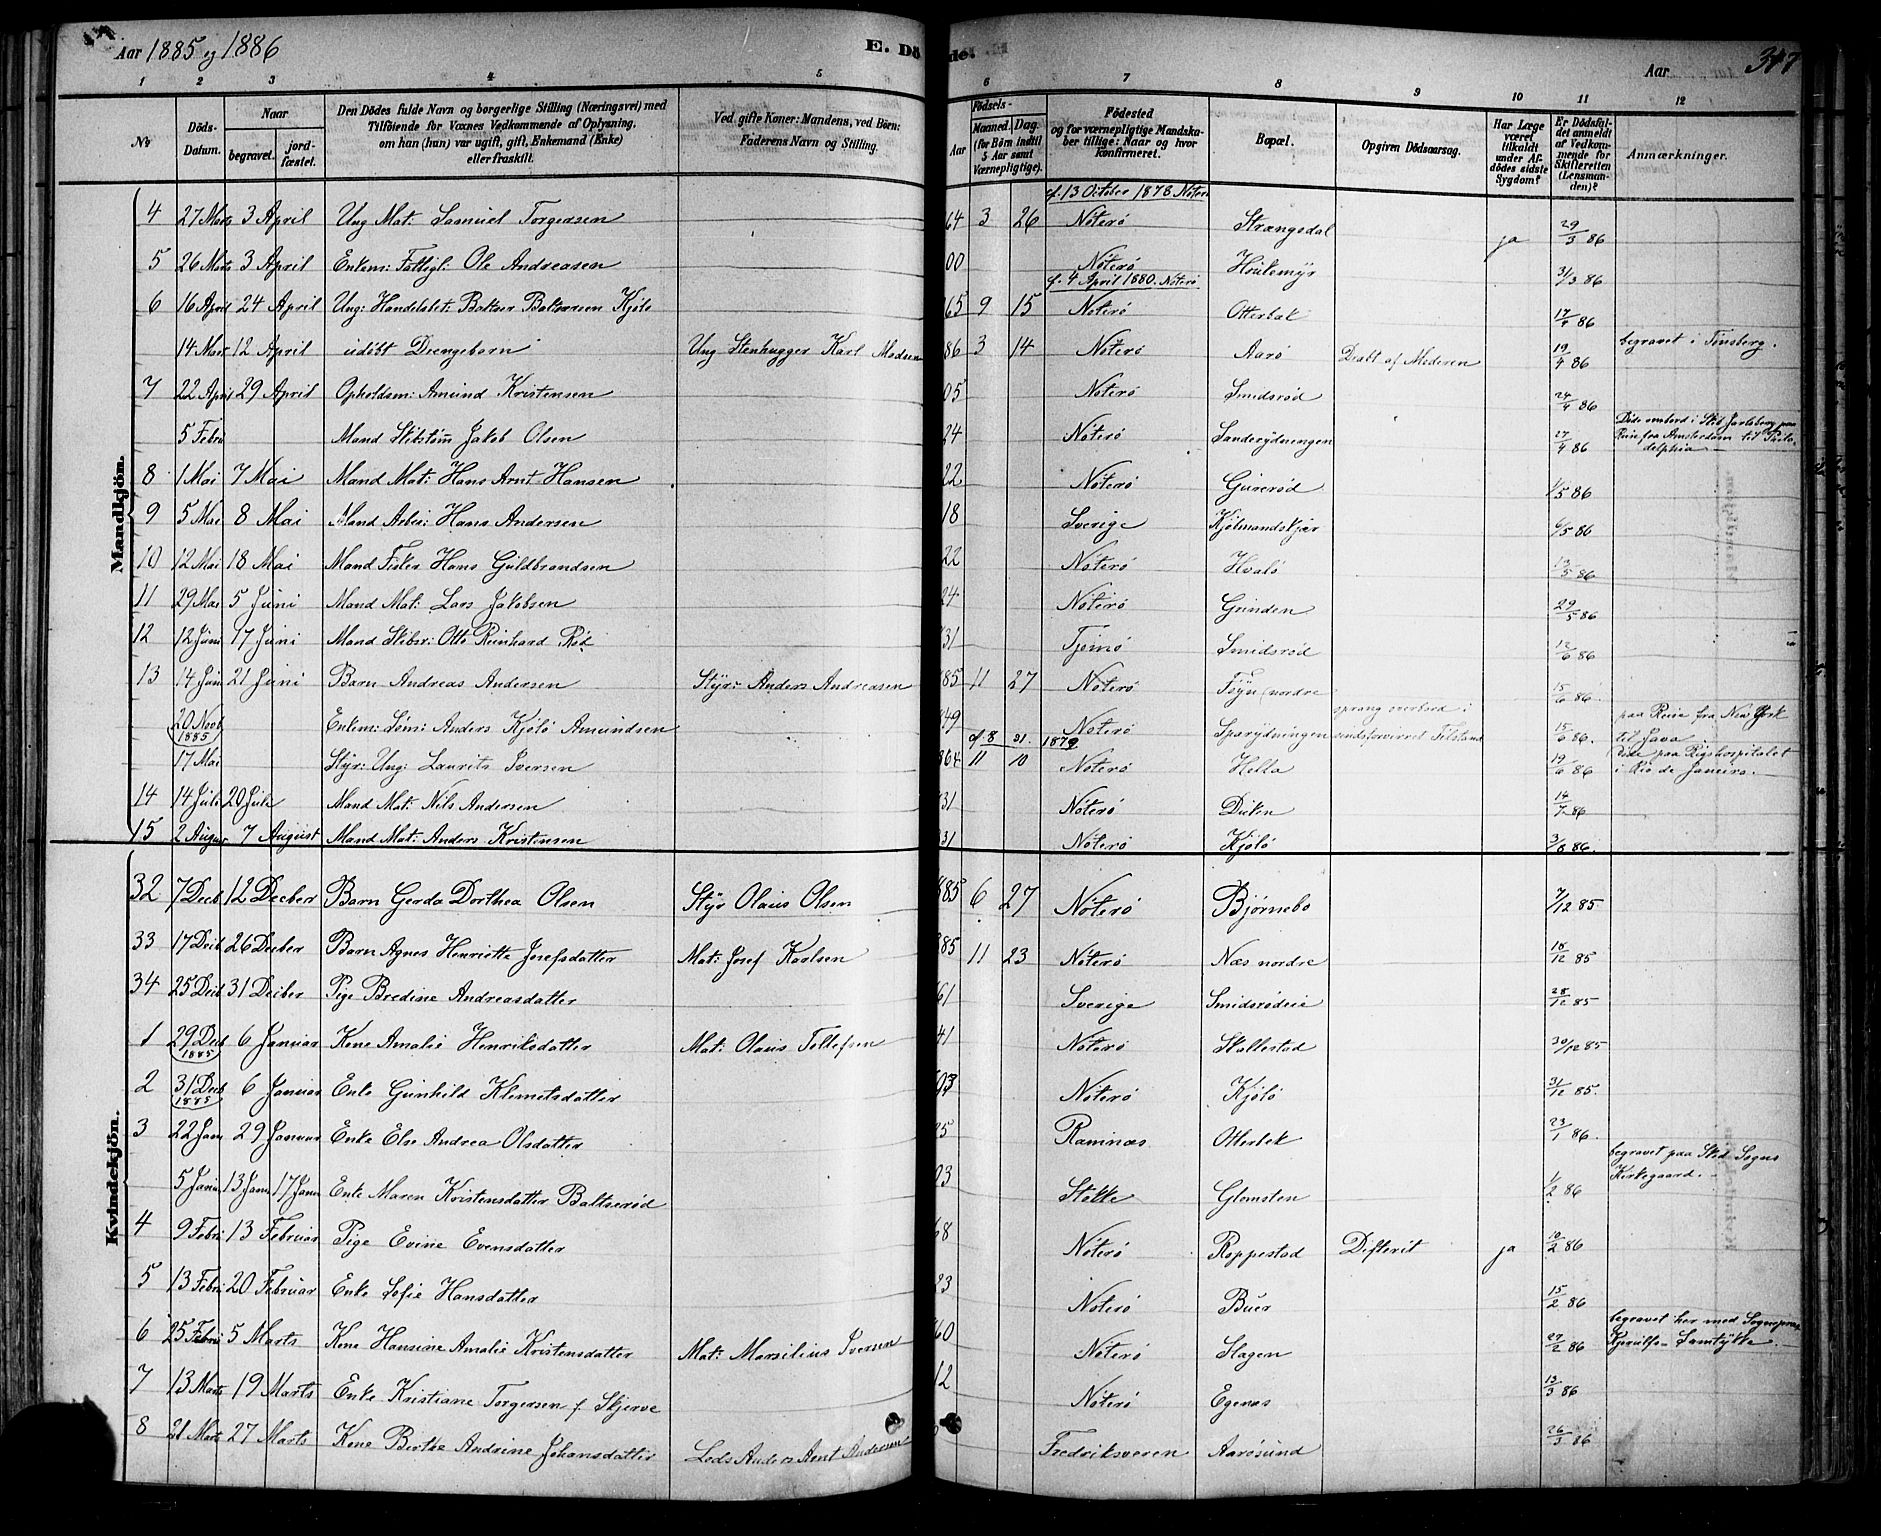 Aar 1885 og 1886
E. Döde.
Aar
347
1 2 3 4 5 6 7 8 9 10 11 12
No
Döds-Datum.
Naar
begravet.
jordfæstet.
Den Dödes fulde Navn og borgerlige Stilling (Næringsvei) med Tilföiende for Voxnes Vedkommende af Oplysning, om han (hun) var ugift, gift, Enkemand (Enke) eller fraskilt.
Ved gifte Koner: Mandens, ved Börn: Faderens Navn og Stilling.
Födsels-
Aar
Maaned.
Dag.
(for Börn indtil 5 Aar samt Værnepligtige).
Födested og for værnepligtige Mandskaber tillige: Naar og hvor konfirmeret.
Bopæl.
Opgiven Dödsaarsag.
Har Læge været tilkaldt under Afdödes sidste Sygdom?
Er Dödsfaldet anmeldt af Vedkommende for Skifteretten (Lensmanden)?
Anmærkninger.
Mandkjön.
cf. 13 October 1878 Nöterö
4 27 Marts 3 April Ung. Mat: Samuel Torgersen 64 3 26 Nöterö Strængsdal ja 29/3 86
5 26 Marts 3 April Enkem: Fattigl: Ole Andreasen 00 Nöterö 31/3 86
cf. 4 April 1880. Nöterö
6 16 April 24 April Ung: Handelsbet: Baltser Baltsersen Kjölö 65 9 15 Nöterö Otterbæk 17/4 86
14 Mars 12 April udöbt Drengebarn Ung Stenhugger Karl Madsen 86 3 14 Nöterö Aarö Dræbt af Moderen 19/4 86 begravet i Tönsberg.
7 22 April 29 April Opholdsm: Amund Kristensen 05 Nöterö Smidsröd 24/4 86
5 Febru Mand Skibstöm̃ Jakob Olsen 24 Nöterö Sanderydningen 27/4 86 Döde ombord i Skib Jarlsberg paa Reise fra Amsterdam til Philadelphia.
8 1 Mai 7 Mai Mand Mat: Hans Arnt Hansen 22 Nöterö Gureröd 1/5 86
9 5 Mai 8 Mai Mand Arbei: Hans Andersen 18 Sverige Kjölmandskjær 6/5 86
10 12 Mai 18 Mai Mand Fisker Hans Guldbrandsen 22 Nöterö Hvalö 13/5 86
11 29 Mai 5 Juni Mand Mat: Lars Jakobsen 24 Nöterö Grinden 29/5 86
12 12 Juni 17 Juni Mand Skibsr: Otto Reinhard Röd 31 Tjømö Smidsröd 12/6 86
13 14 Juni 21 Juni Barn Andreas Andersen Styr: Anders Andreasen 885 11 27 Nöterö Föyn (nordre 15/6 86
20 Novb 1885 Enkem: Söm: Anders Kjölö Amundsen 849 Nöterö Sparydningen sprang overbord i sindsforvirret Tilstand 15/6 86. paa Reise fra New York til Java.
cf. 8 31. 1879
17 Mai Styr: Ung: Laurits Iversen 864 11 10 Nöterö Hella 19/6 86 Döde paa Rigshospitalet i Rio de Janeiro.
14 14 Juli 20 Juli Mand Mat: Nils Andersen 31 Nöterö Duken 14/7 86
15 2 August 7 August Mand Mat: Anders Kristensen 31 Nöterö Kjölö 3/8 86.
Kvindekjön.
32 7 Decb 12 Decber Barn Gerda Dorthea Olsen Styr Olaus Olsen 885 6 27 Nöterö Bjørnebo 7/12 85.
33 17 Decb 26 Decber Barn Agnes Henriette Josefsdatter Mat: Josef Karlsen 885 11 23 Nöterö Næs nordre 18/12 85
34 25 Decb 31 Decber Pige Bredine Andreasdatter 61 Sverige Smidsrödeie 28/12 85
1 29 Decb 1885 6 Januar Kone Amalie Henriksdatter Mat: Olaus Tollefsen 41 Nöterö Skallestad 30/12 85
2 31 Decb 1885 6 Januar Enke Gunhild Klemetsdatter 03 Nöterö Kjölö 31/12 85.
3 22 Janu 29 Januar Enke Else Andrea Olsdatter 25 Ramnæs Otterbæk 23/1 86.
5 Janu 13 Janu 17 Janu Enke Maren Kristensdatter Baltseröd 03 Stokke Glomsten 1/2 86 begravet paa Skee Sogns Kirkegaard.
4 9 Febru 13 Februar Pige Evine Evensdatter 68 Nöterö Roppestad Difterit ja 10/2 86
5 13 Febru 20 Februar Enke Sofie Hansdatter 23 Nöterö Buer 15/2 86
6 25 Febru 5 Marts Kone Hansine Amalie Kristensdatter Mat: Marsilius Iversen 60 Nöterö Slagen 27/2 86 begravet her med Sognepræst Kjerulfs Samtykke.
7 13 Marts 19 Marts Enke Kristiane Torgersen f. Skjerve 12 Nöterö Egenæs 13/3 86
8 21 Marts 27 Marts Kone Berthe Andrine Johansdatter Lods Anders Arnt Andersen Fredriksværen Aarösund 26/3 86